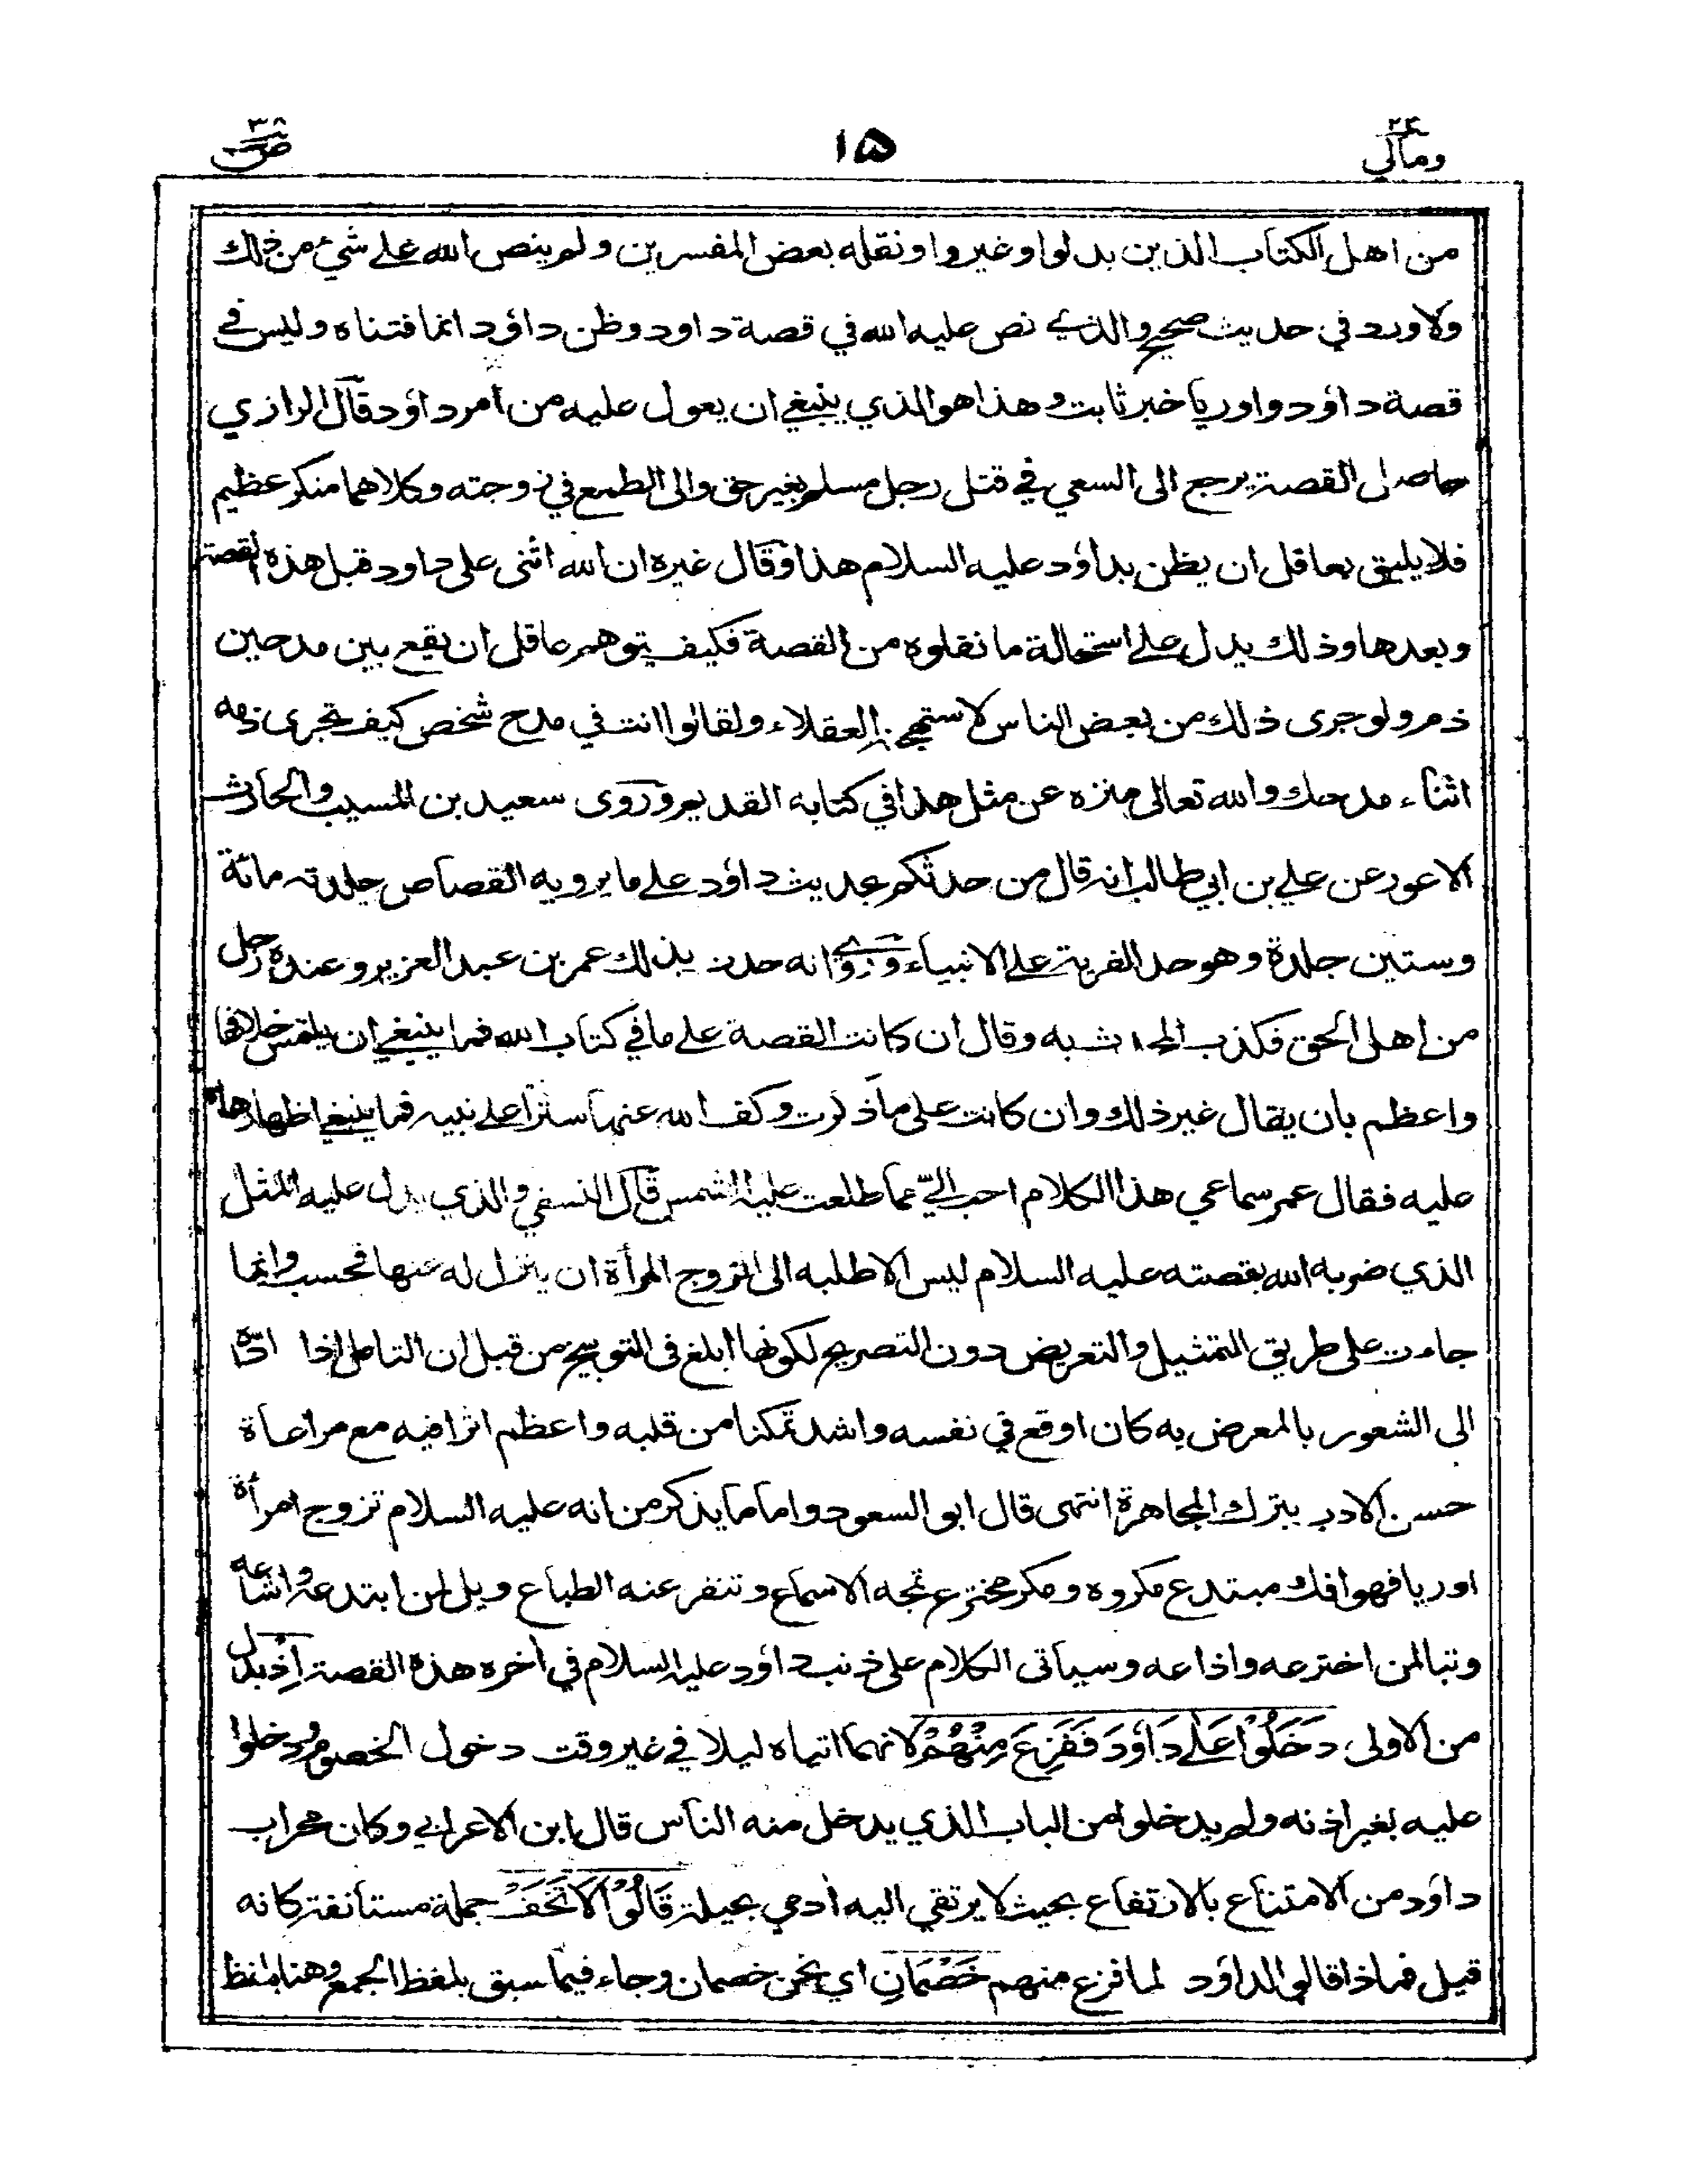 ٢٣ ومالي
١٥
٣٨ ص
من اهل الكتاب الذين بدلوا وغيروا ونقله بعض المفسرين ولم ينص الله على شيء من ذلك
ولا ورد في حديث صحيح والذي نص عليه الله في قصة داود وظن داؤد انما فتناه وليس في
قصة داؤد واوريا خبر ثابت وهذا هو الذي ينبغي ان يعول عليه من امر داؤد قال الرازي
حاصل القصة يرجع الى السعي في قتل رجل مسلم بغير حق والى الطمع في زوجته وكلاهما منكر عظيم
فلا يليق بعاقل ان يظن بداؤد عليه السلام هذا وقال غيره ان الله اثنى على داود قبل هذه القصة
وبعدها وذلك يدل على استحالة ما نقلوه من القصة فكيف يتوهم عاقل ان يقع بين مدحين
ذم ولو جرى ذلك من بعض الناس لاستهجنه العقلاء ولقالوا انت في مدح شخص كيف تجرى ذمه
اثناء مدحك والله تعالى منزه عن مثل هذا في كتابه القديم وروى سعيد بن المسيب والحارث
الاعور عن علي بن ابي طالب انه قال من حدثكم بحديث داؤد على ما يرويه القصاص جلدته مائة
وستين جلدة وهو حد الفرية على الانبياء وروي انه حدث بذلك عمر بن عبد العزيز وعنده رجل
من اهل الحق فكذب المحدث به وقال ان كانت القصة على ما في كتاب الله فما ينبغي ان يلتمس خلافها
واعظم بان يقال غير ذلك وان كانت على ما ذكرت وكف الله عنها سترا على نبيه فما ينبغي اظهارها
عليه فقال عمر سماعي هذا الكلام احب اليّ مما طلعت عليه الشمس قال النسفي والذي يدل عليه المثل
الذي ضربه الله بقصته عليه السلام ليس الا طلبه الى الزوج المرأة ان ينزل له عنها فحسب وانما
جاءت على طريق التمثيل والتعريض دون التصريح لكونها ابلغ في التوبيخ من قبل ان التامل اذا ادّاه
الى الشعور بالمعرض به كان اوقع في نفسه واشد تمكنا من قلبه واعظم اثرا فيه مع مراعاة
حسن الادب بترك المجاهرة انتهى قال ابو السعود واما ما يذكر من انه عليه السلام تزوج امرأة
اوريا فهو افك مبتدع مكروه ومكر مخترع تمجه الاسماع وتنفر عنه الطباع ويل لمن ابتدعه واشاعه
وتبا لمن اخترعه واذاعه وسيأتى الكلام على ذنب داؤد عليه السلام في اخره هذه القصة اِذْ بدل
من الاولى دَخَلُوْا عَلٰى دَاوٗدَ فَفَزِعَ مِنْهُمْ لانهما اتياه ليلا في غير وقت دخول الخصوم ودخلوا
عليه بغير اذنه ولم يدخلوا من الباب الذي يدخل منه الناس قال ابن الاعرابي وكان محراب
داؤد من الامتناع بالارتفاع بحيث لا يرتقي اليه أدمي بحيلة قَالُوْا لَا تَخَفْ جملة مستأنفة كانه
قيل فماذا قالوا لداؤد لما فزع منهم خَصْمَانِ اي نحن خصمان وجاء فيما سبق بلفظ الجمع وهنا بلفظ